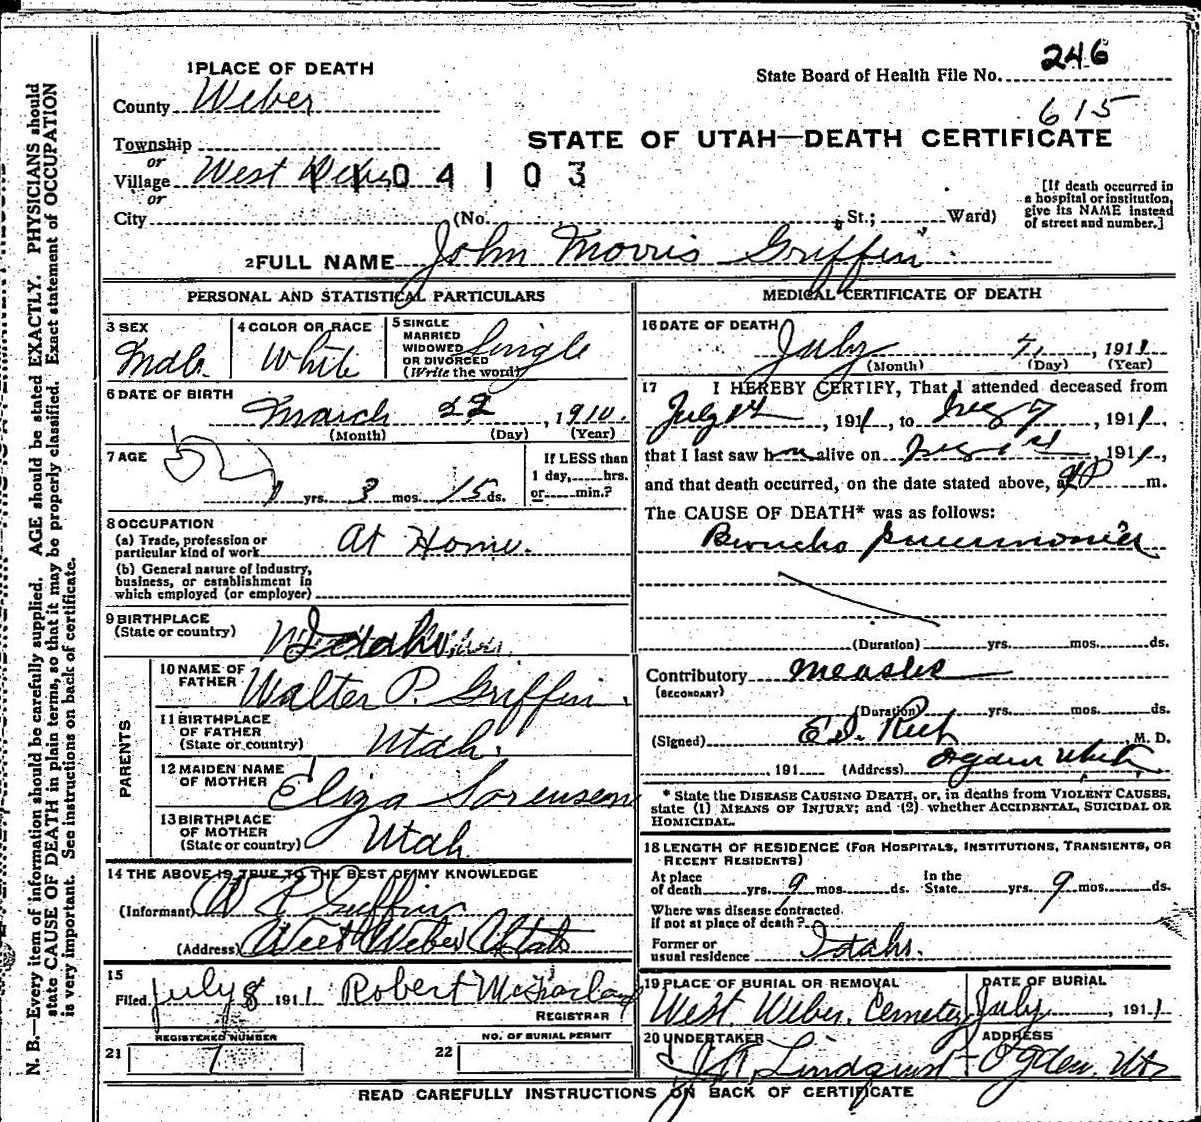 246
1 PLACE OF DEATH
State Board of Health File No.
County Weber
615
STATE OF UTAH—DEATH CERTIFICATE
Township
or
Village West Weber
1104103
or
City (No. St.; Ward)
[If death occurred in
a hospital or institution,
give its NAME instead
of street and number.]
2 FULL NAME John Morris Griffin
PERSONAL AND STATISTICAL PARTICULARS
3 SEX
Male
4 COLOR OR RACE
White
5 SINGLE
MARRIED
WIDOWED
OR DIVORCED
(Write the word)
Single
6 DATE OF BIRTH
March 22, 1910.
(Month) (Day) (Year)
7 AGE
1 yrs. 3 mos. 15 ds.
If LESS than
1 day, hrs.
or min.?
8 OCCUPATION
(a) Trade, profession or
particular kind of work At Home.
(b) General nature of industry,
business, or establishment in
which employed (or employer)
9 BIRTHPLACE
(State or country) Idaho
PARENTS
10 NAME OF
FATHER Walter P. Griffin.
11 BIRTHPLACE
OF FATHER
(State or country) Utah.
12 MAIDEN NAME
OF MOTHER Eliza Sorensen
13 BIRTHPLACE
OF MOTHER
(State or country) Utah
14 THE ABOVE IS TRUE TO THE BEST OF MY KNOWLEDGE
(Informant) W P Griffin
(Address) West Weber Utah
15
Filed July 8 1911 Robert McFarland
REGISTRAR
REGISTERED NUMBER
21 7
NO. OF BURIAL PERMIT
22
MEDICAL CERTIFICATE OF DEATH
16 DATE OF DEATH
July 7, 1911
(Month) (Day) (Year)
17 I HEREBY CERTIFY, That I attended deceased from
July 1st, 1911, to 7, 1911.
that I last saw him alive on 1911,
and that death occurred, on the date stated above, at P m.
The CAUSE OF DEATH* was as follows:
Broncho pneumonia
(Duration) yrs. mos. ds.
Contributory Measles
(SECONDARY)
(Duration) yrs. mos. ds.
(Signed) E I. Rich, M. D.
, 191 (Address) Ogden Utah
* State the DISEASE CAUSING DEATH, or, in deaths from VIOLENT CAUSES,
state (1) MEANS OF INJURY; and (2) whether ACCIDENTAL, SUICIDAL OR
HOMICIDAL.
18 LENGTH OF RESIDENCE (FOR HOSPITALS, INSTITUTIONS, TRANSIENTS, OR
RECENT RESIDENTS)
At place
of death yrs. 9 mos. ds.
In the
State yrs. 9 mos. ds.
Where was disease contracted.
if not at place of death?
Former or
usual residence Idaho.
19 PLACE OF BURIAL OR REMOVAL
West. Weber. Cemetery
DATE OF BURIAL
July, 1911
20 UNDERTAKER
Lindquist
ADDRESS
Ogden. Ut
READ CAREFULLY INSTRUCTIONS ON BACK OF CERTIFICATE
N. B.—Every item of information should be carefully supplied. AGE should be stated EXACTLY. PHYSICIANS should
state CAUSE OF DEATH in plain terms, so that it may be properly classified. Exact statement of OCCUPATION
is very important. See instructions on back of certificate.